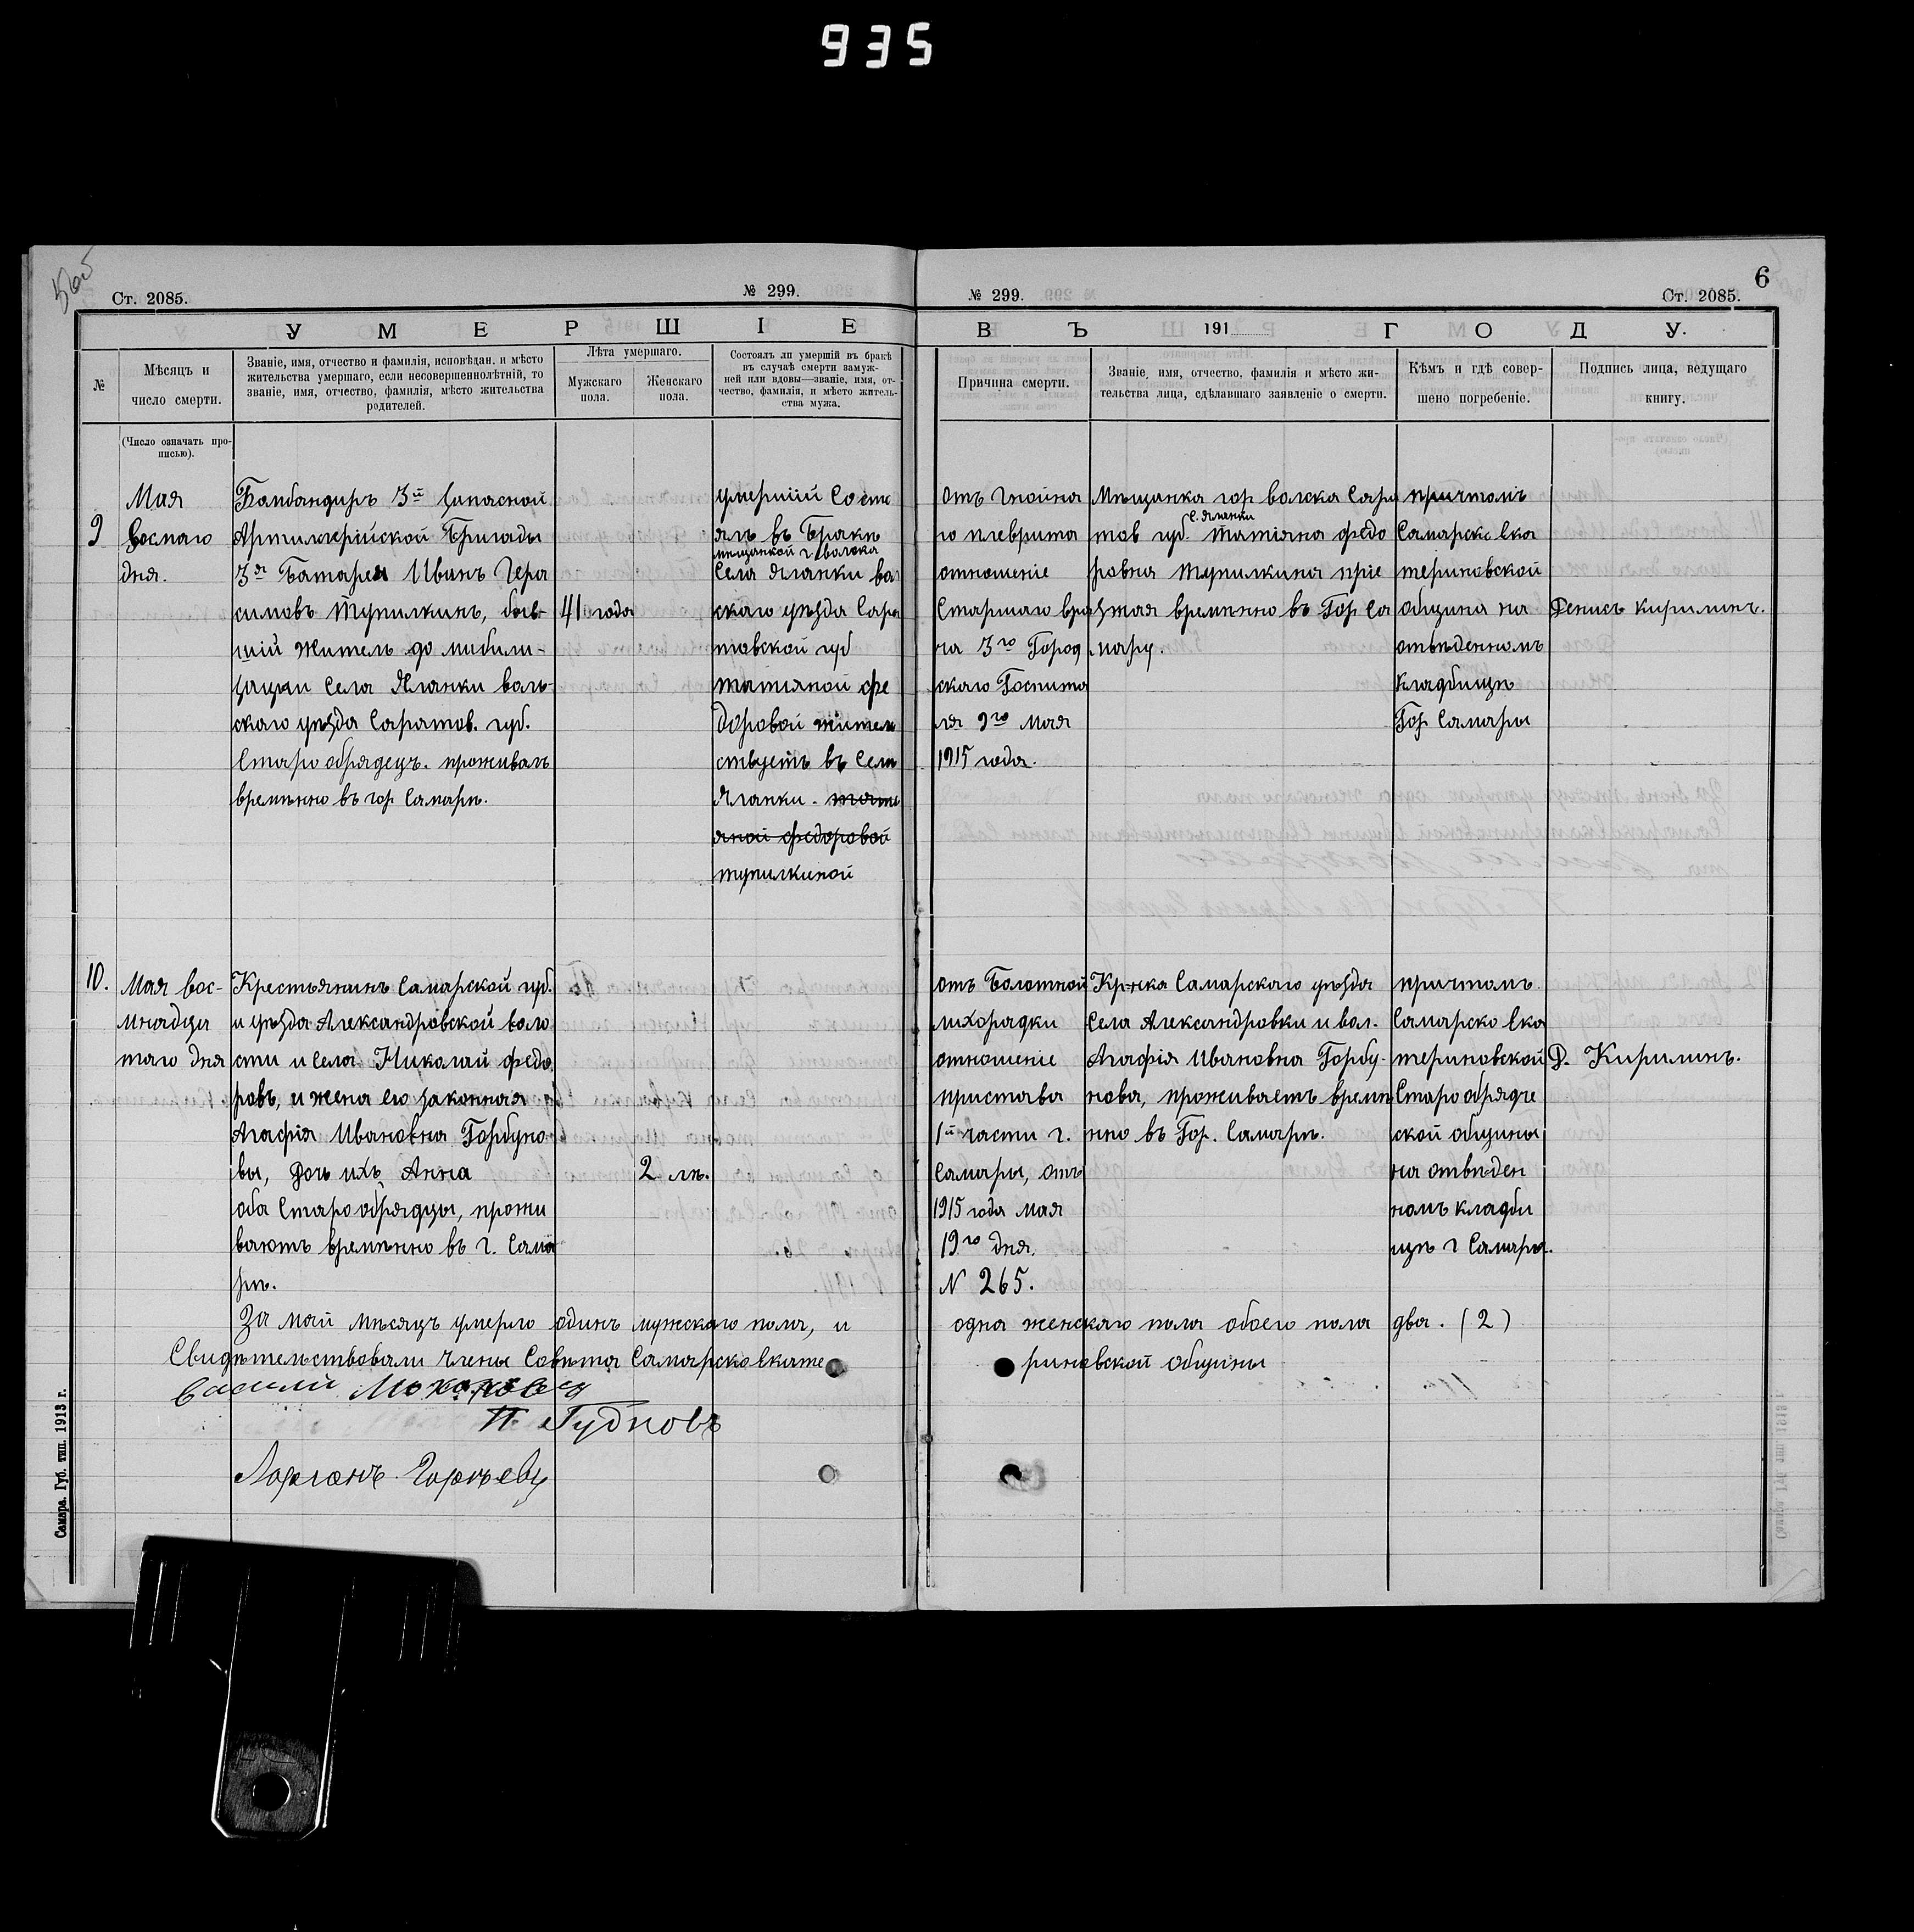 935
6
Ст. 2085.
№ 299.
№ 299.
Ст. 2085.
УМЕРШІЕ
ВЪ 191 ГОДУ.
№
Мѣсяцъ и
число смерти.
Званіе, имя, отчество и фамилія, исповѣдан. и мѣсто
жительства умершаго, если несовершеннолѣтній, то
званіе, имя, отчество, фамилія, мѣсто жительства
родителей.
Лѣта умершаго.
Мужскаго
пола.
Женскаго
пола.
Состоялъ лп умершій въ бракѣ
въ случаѣ смерти замуж-
ней или вдовы—званіе, имя, от-
чество, фамилія, и мѣсто житель-
ства мужа.
Причина смерти.
Званіе, имя, отчество, фамилія и мѣсто жи-
тельства лица, сдѣлавшаго заявленіе о смерти.
Кѣмъ и гдѣ совер-
шено погребеніе.
Подпись лица, ведущаго
книгу.
(Число означать про-
писью).
9
Мая
Восмаго
дня.
Бамбандиръ 3й Запасной
Артиллерійской Бригады
3я Батареи Иванъ Гера
симовъ Тупилкинъ, быв-
шій житель до мибили-
зацыи Села Яланки валь-
скаго уѣзда Саратов. губ.
Старообрядецъ. проживалъ
времѣнно въ гор Самарѣ.
41 года
умершій Состо
ялъ въ Бракѣ
мѣщанкой г. волска
Села Яланки вол
скаго уѣзда Сара
товской губ
татияной фе
доровой жител
ствуетъ въ Селѣ
Яланки. тати
яной федоровой
тупилкиной
отъ Гнойна
го плеврита
отношеніе
Старшаго вра
ча 3го Город
скаго Госпита
ля 9го Мая
1915 года.
Мѣщанка гор волска Сара
С. Яланки
тов губ. татіяна федо
ровна тупилкина пріе
зжая времѣнно въ Гор Са
мару.
причтомъ
Самарск Ека
териновской
община на
отвѣденномъ
Кладбищѣ
Гор Самары
Денисъ Кирилинъ.
10.
Мая вос-
мнадца
таго дня
Крестьянинъ Самарской губ.
и уѣзда Александровской воло
сти и села Николай федо
ровъ, и жена его законная
Агафія Ивановна Горбуно
вы, дочь ихъ Анна
оба Старообрядцы, прожи
ваютъ времѣнно въ г. Сама
рѣ.
2 лѣ.
отъ Болотной
лихорадки
отношеніе
пристава
1й части г.
Самары, отъ
1915 года мая
19го дня.
N 265.
Кр-нка Самарскаго уѣзда
Села Александровки и вол.
Агафія Ивановна Горбу-
нова, проживаетъ времѣ
нно въ Гор. Самарѣ.
причтомъ
Самарско Ека
териновской
Старообрядче
ской общины
на отвѣден
номъ кладби
щѣ г Самары.
Д. Кирилинъ.
За май мѣсяцъ умерло одинъ мужскаго пола, и одна женскаго пола обоего пола два. (2)
Свидѣтельствовали Члены Совѣта Самарско Екате риновской общины
П. Губновъ
Самара. Губ. тип. 1913 г.